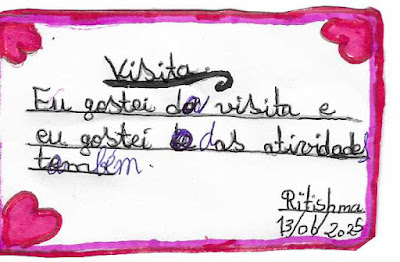 Visita
Eu gostei da visita e
eu gostei das atividades
também.
Ritishma
13/06/2025